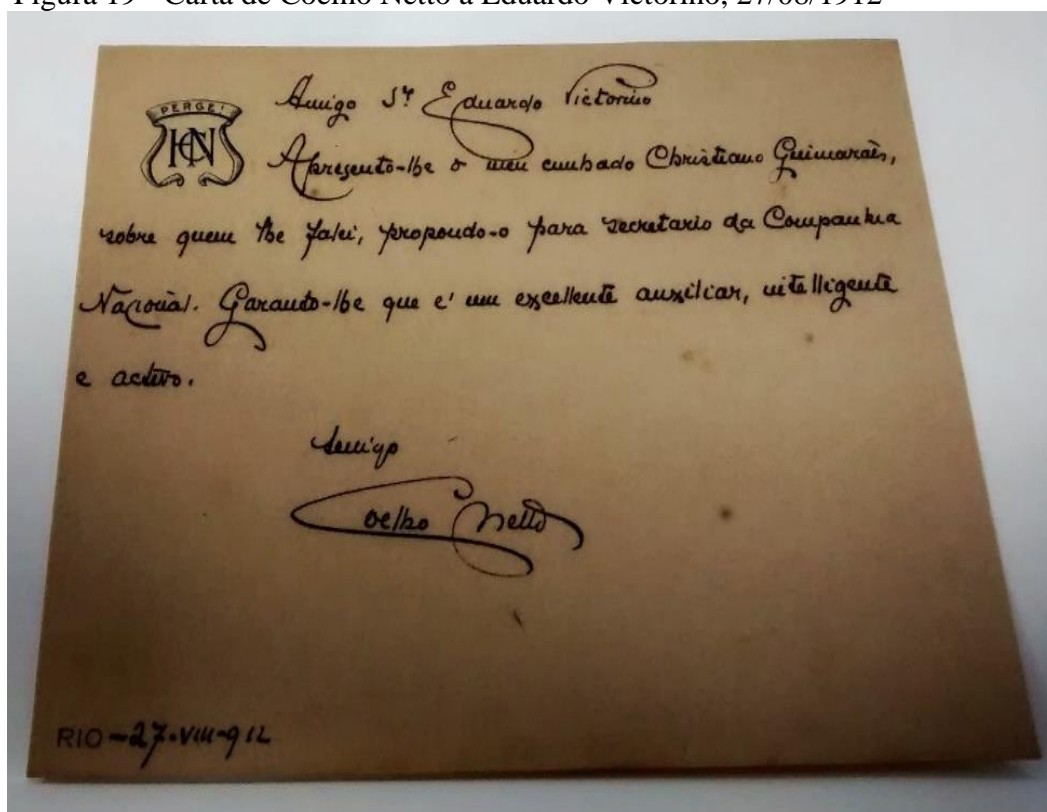 Figura 19 - Carta de Coelho Netto a Eduardo Victorino, 27/08/1912
PERGE!
HCN
Amigo Sr Eduardo Victorino
Apresento-lhe o meu cunhado Christiano Guimarães,
sobre quem lhe falei, propondo-o para secretario da Companhia
Nacional. Garanto-lhe que e' um excellente auxiliar, intelligente
e activo.
Amigo
Coelho Netto
RIO-27-VIII-912